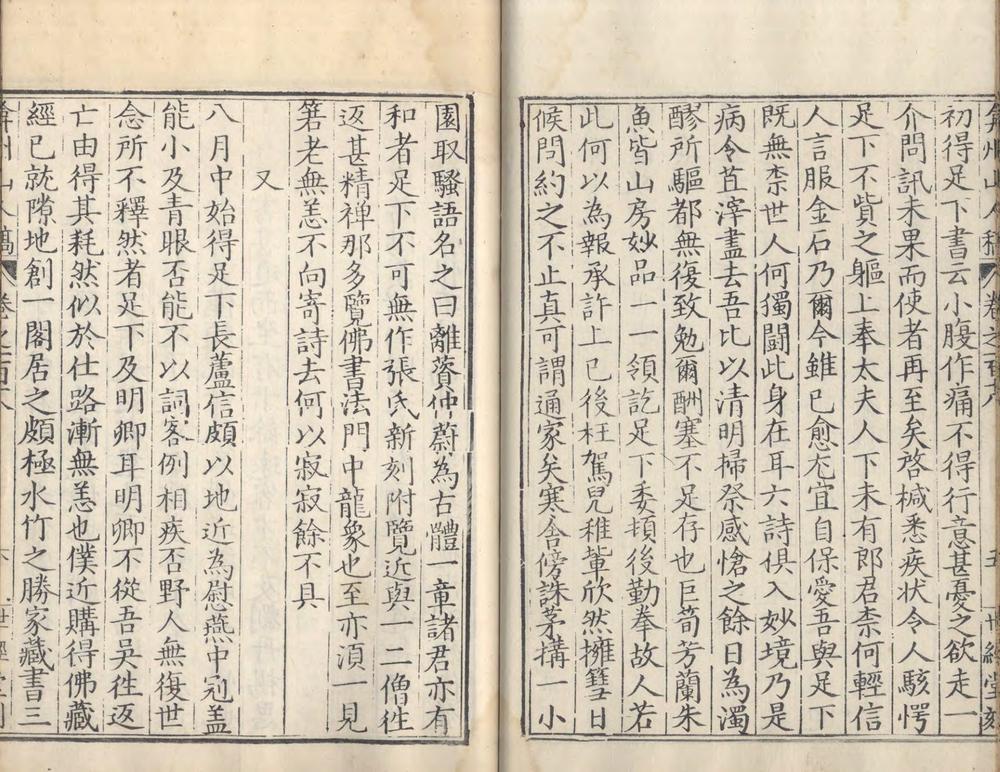 初得足下書云小腹作痛不得行意甚憂之欲走一
介問訊未果而使者再至矣啓椷悉疾狀令人駭愕
足下不貲之軀上奉太夫人下未有郎君柰何輕信
人言服金石乃爾今雖已愈尤宜自保愛吾與足下
既無柰世人何獨鬪此身在耳六詩俱入妙境乃是
病令苴滓盡去吾比以清明掃祭感愴之餘日為濁
醪所驅都無復致勉爾酬塞不足存也巨筍芳蘭朱
魚皆山房妙品一一領訖足下委頓後勤拳故人若
此何以為報承許上巳後枉駕兒稚輩欣然擁篲日
候問約之不止真可謂通家矣寒舍傍誅茅搆一小
園取騷語名之曰離薋仲蔚為古體一章諸君亦有
和者足下不可無作張氏新刻附覽近與一二僧徃
返甚精禪那多覽佛書法門中龍象也至亦湏一見
箬老無恙不向寄詩去何以寂寂餘不具
又
八月中始得足下長蘆信頗以地近為慰燕中冠盖
能小及青眼否能不以詞客例相疾否野人無復世
念所不釋然者足下及明卿耳明卿不從吾吳徃返
亡由得其耗然似於仕路漸無恙也僕近購得佛藏
經已就隙地創一閣居之頗極水竹之勝家藏書三
弇州山人稿 卷之百